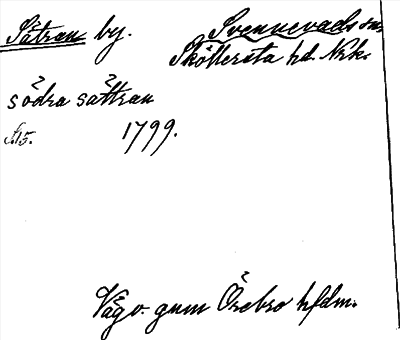 Sätran by. Svennevads sn.
Sköllersta hd. Nrk.
södra sättran
1799.
Väg o. gum Örebro hfdm.